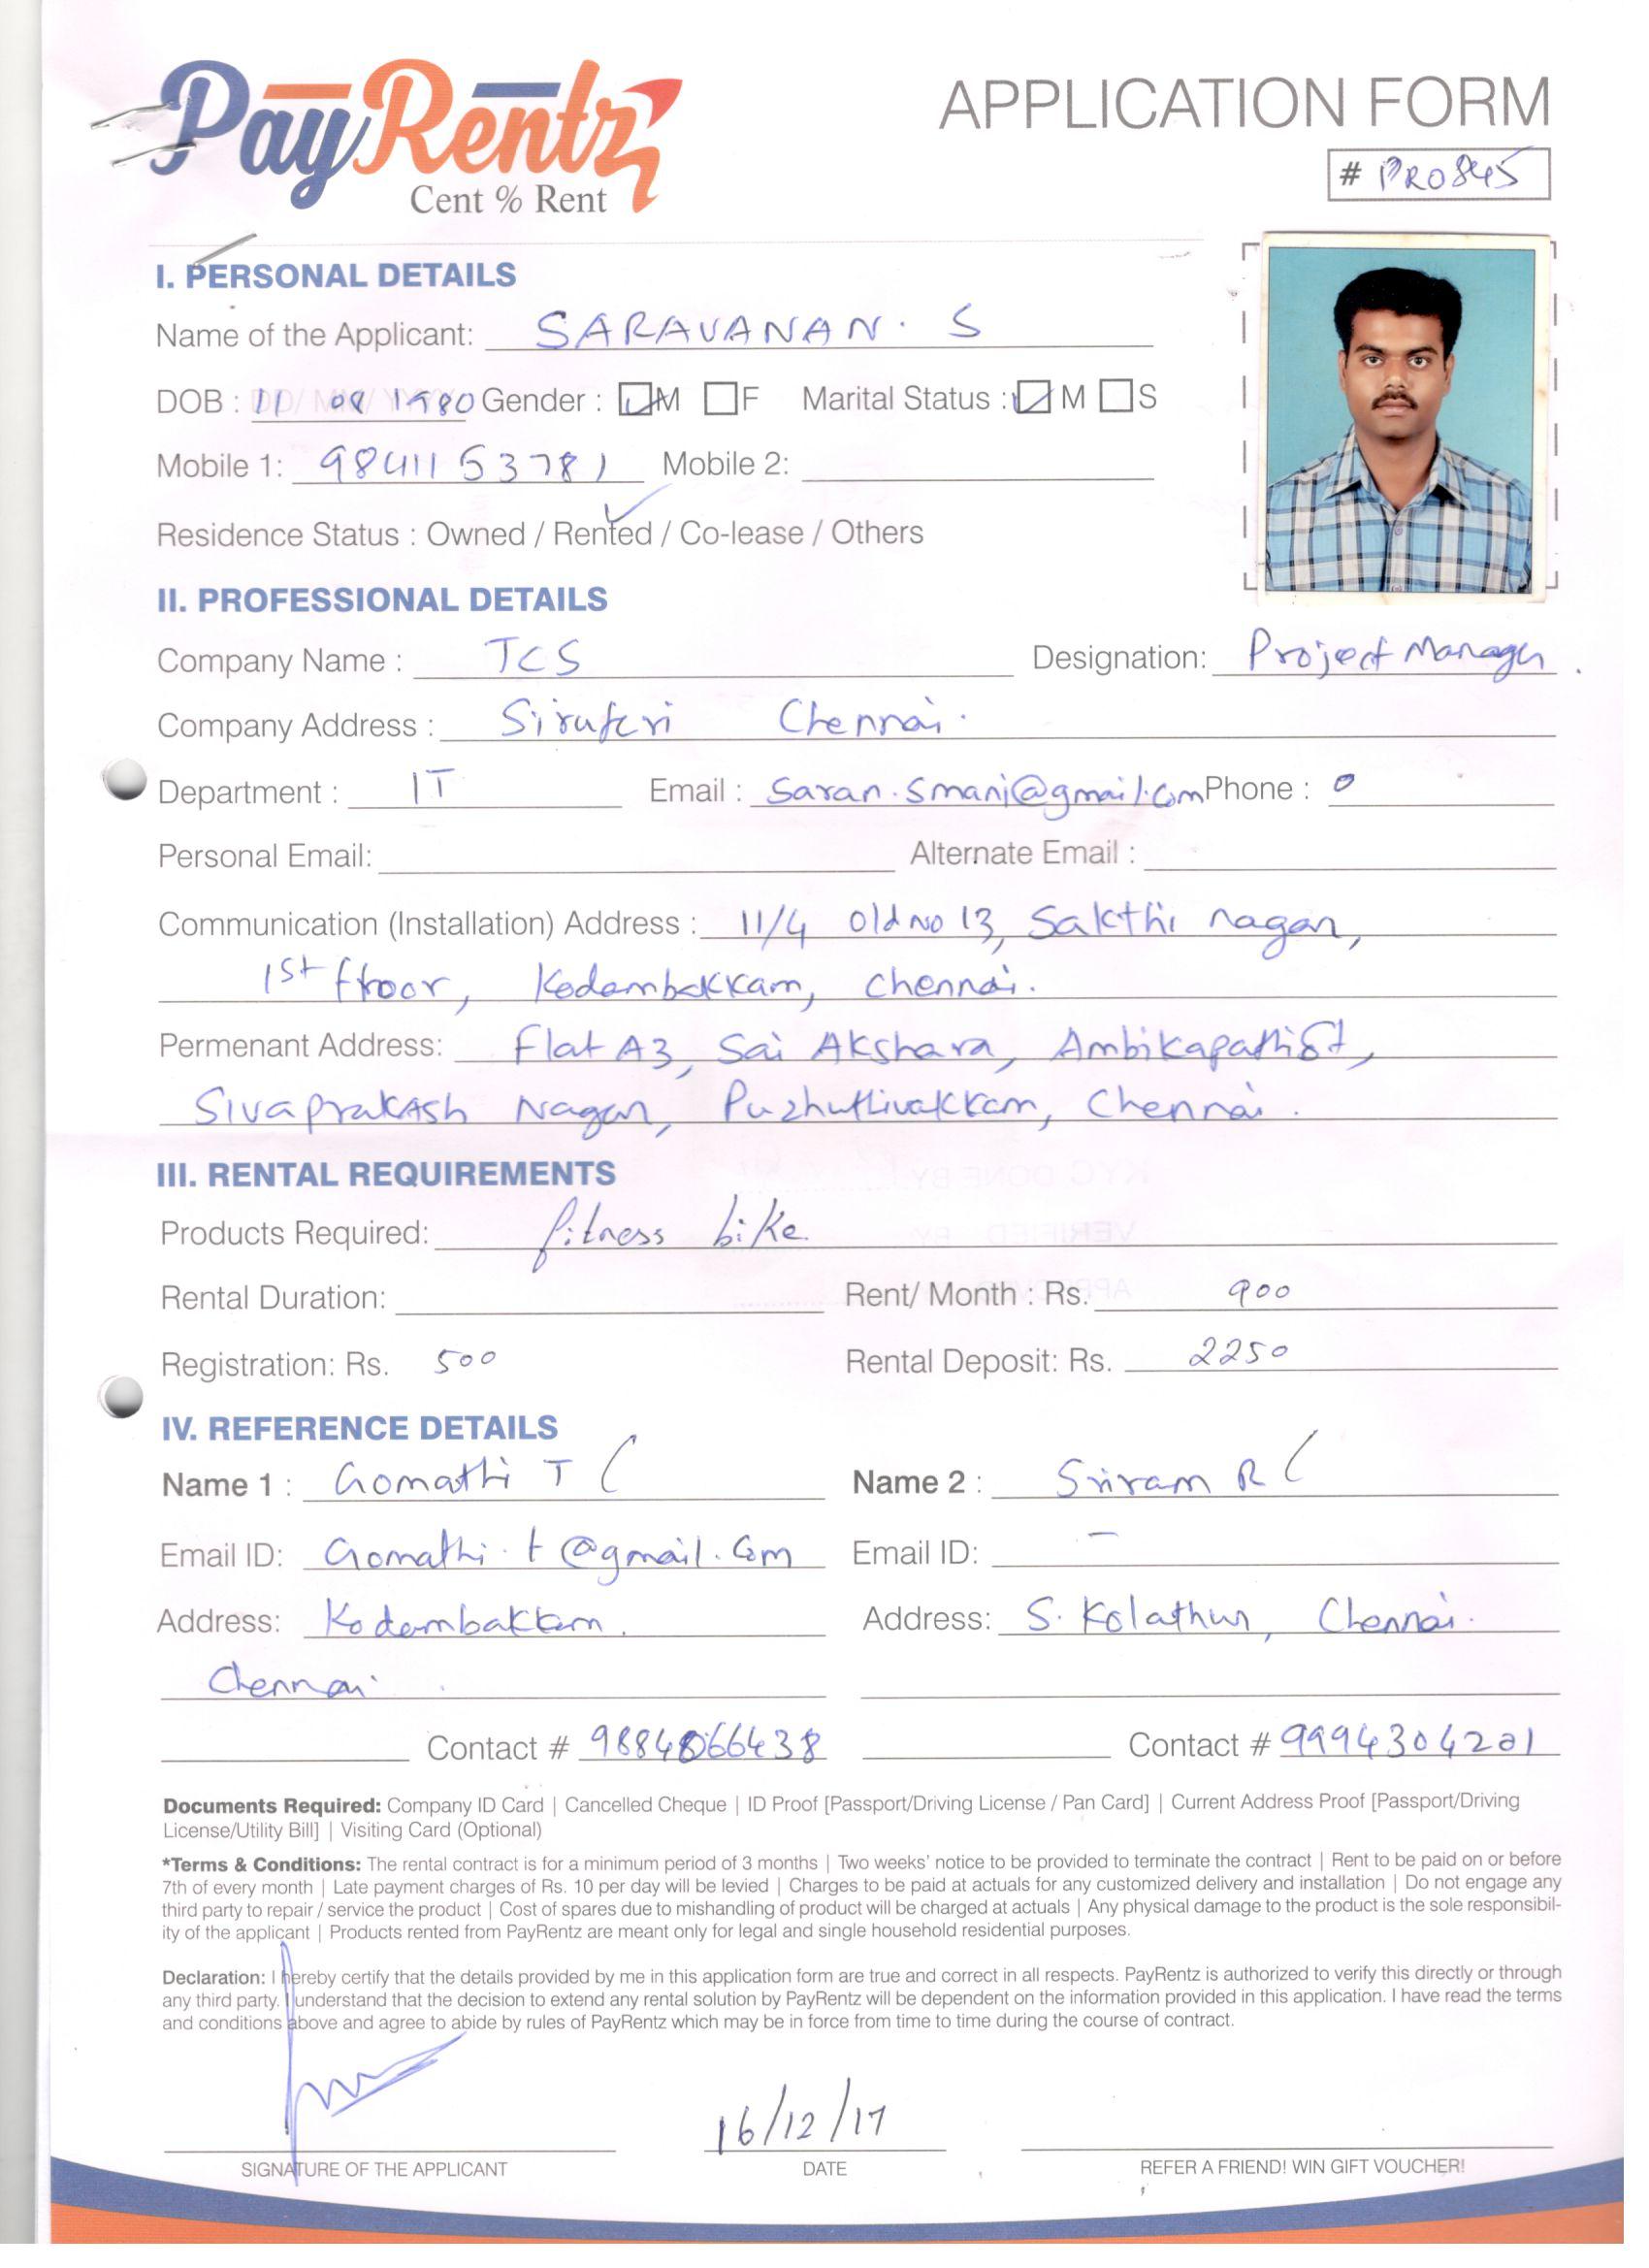 PayRentz
Cent % Rent
APPLICATION FORM
# PR0845
I. PERSONAL DETAILS
Name of the Applicant: SARAVANAN. S
DOB : 11 08 1980 Gender : M F Marital Status : M S
Mobile 1: 9841153781 Mobile 2:
Residence Status : Owned / Rented / Co-lease / Others
II. PROFESSIONAL DETAILS
Company Name : TCS Designation: Project Manager
Company Address : Siruseri Chennai.
Department : IT Email : Saran.smani@gmail.com Phone : 0
Personal Email: Alternate Email :
Communication (Installation) Address : 11/4 old no 13, Sakthi nagar,
1st floor, Kodambakkam, chennai.
Permenant Address: Flat A3, Sai Akshara, Ambikapathi St,
Sivaprakash Nagar, Puzhuthivakkam, Chennai.
III. RENTAL REQUIREMENTS
Products Required: fitness bike
Rental Duration: Rent/ Month : Rs. 900
Registration: Rs. 500 Rental Deposit: Rs. 2250
IV. REFERENCE DETAILS
Name 1 : Gomathi T Name 2 : Sriram R
Email ID: Gomathi.t@gmail.com Email ID: –
Address: Kodambakkam. Address: S. Kolathur, Chennai.
Chennai.
Contact # 9884066438 Contact # 9994304201
Documents Required: Company ID Card | Cancelled Cheque | ID Proof [Passport/Driving License / Pan Card] | Current Address Proof [Passport/Driving
License/Utility Bill] | Visiting Card (Optional)
*Terms & Conditions: The rental contract is for a minimum period of 3 months | Two weeks' notice to be provided to terminate the contract | Rent to be paid on or before
7th of every month | Late payment charges of Rs. 10 per day will be levied | Charges to be paid at actuals for any customized delivery and installation | Do not engage any
third party to repair / service the product | Cost of spares due to mishandling of product will be charged at actuals | Any physical damage to the product is the sole responsibil-
ity of the applicant | Products rented from PayRentz are meant only for legal and single household residential purposes.
Declaration: I hereby certify that the details provided by me in this application form are true and correct in all respects. PayRentz is authorized to verify this directly or through
any third party. I understand that the decision to extend any rental solution by PayRentz will be dependent on the information provided in this application. I have read the terms
and conditions above and agree to abide by rules of PayRentz which may be in force from time to time during the course of contract.
16/12/17
SIGNATURE OF THE APPLICANT DATE REFER A FRIEND! WIN GIFT VOUCHER!